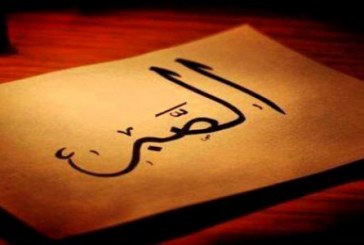 الصّبر